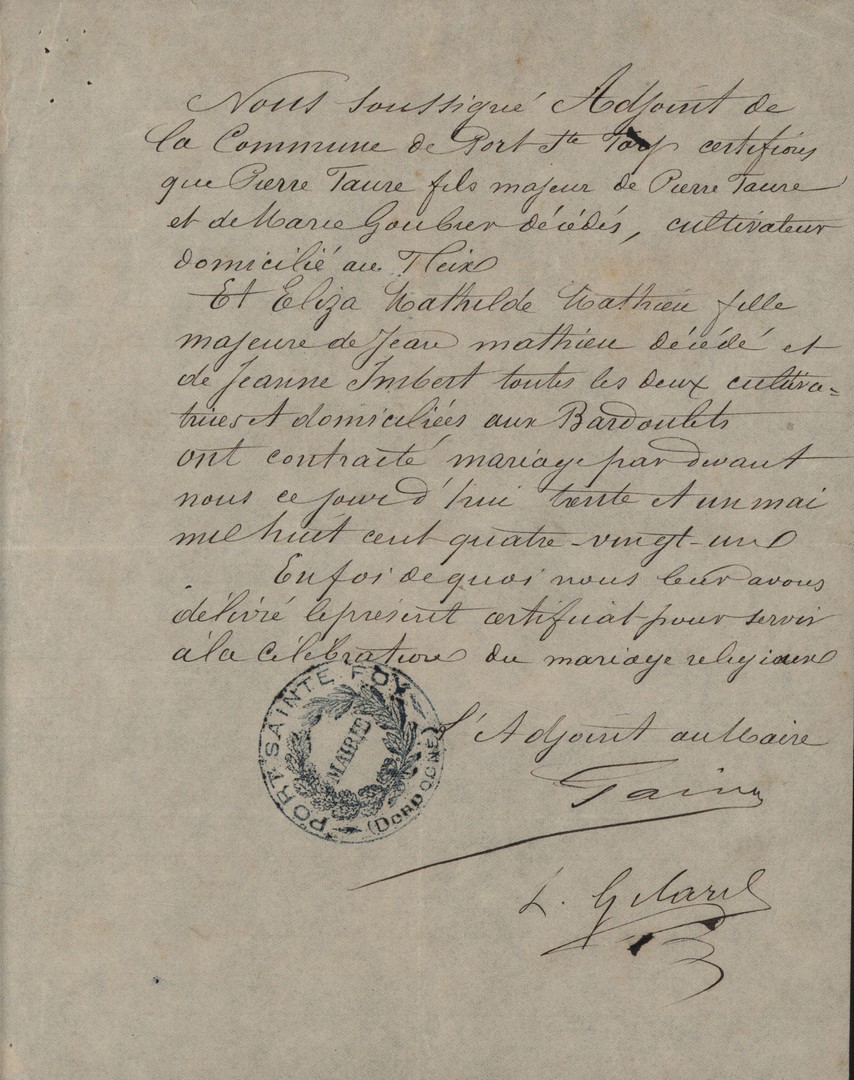 Nous soussigué Adjoint de
la Commune de Port Ste Foy certifions
que Pierre Taure fils majeur de Pierre Taure
et de Marie Goubier décédés, cultivateur
domicilié au Fleix
Et Eliza Mathilde Mathieu fille
majeure de Jean mathieu décédé et
de Jeanne Imbert toutes les deux cultiva=
trices et domiciliées aux Bardoulets
ont contracté mariage par devant
nous ce jour d'hui trente et un mai
mil huit cent quatre-vingt-un
En foi de quoi nous leur avons
délivré le présent certificat pour servir
à la célébration du mariage religieux
PORT SAINTE FOY
MAIRIE
(DORDOGNE)
L'Adjoint au Maire
L.